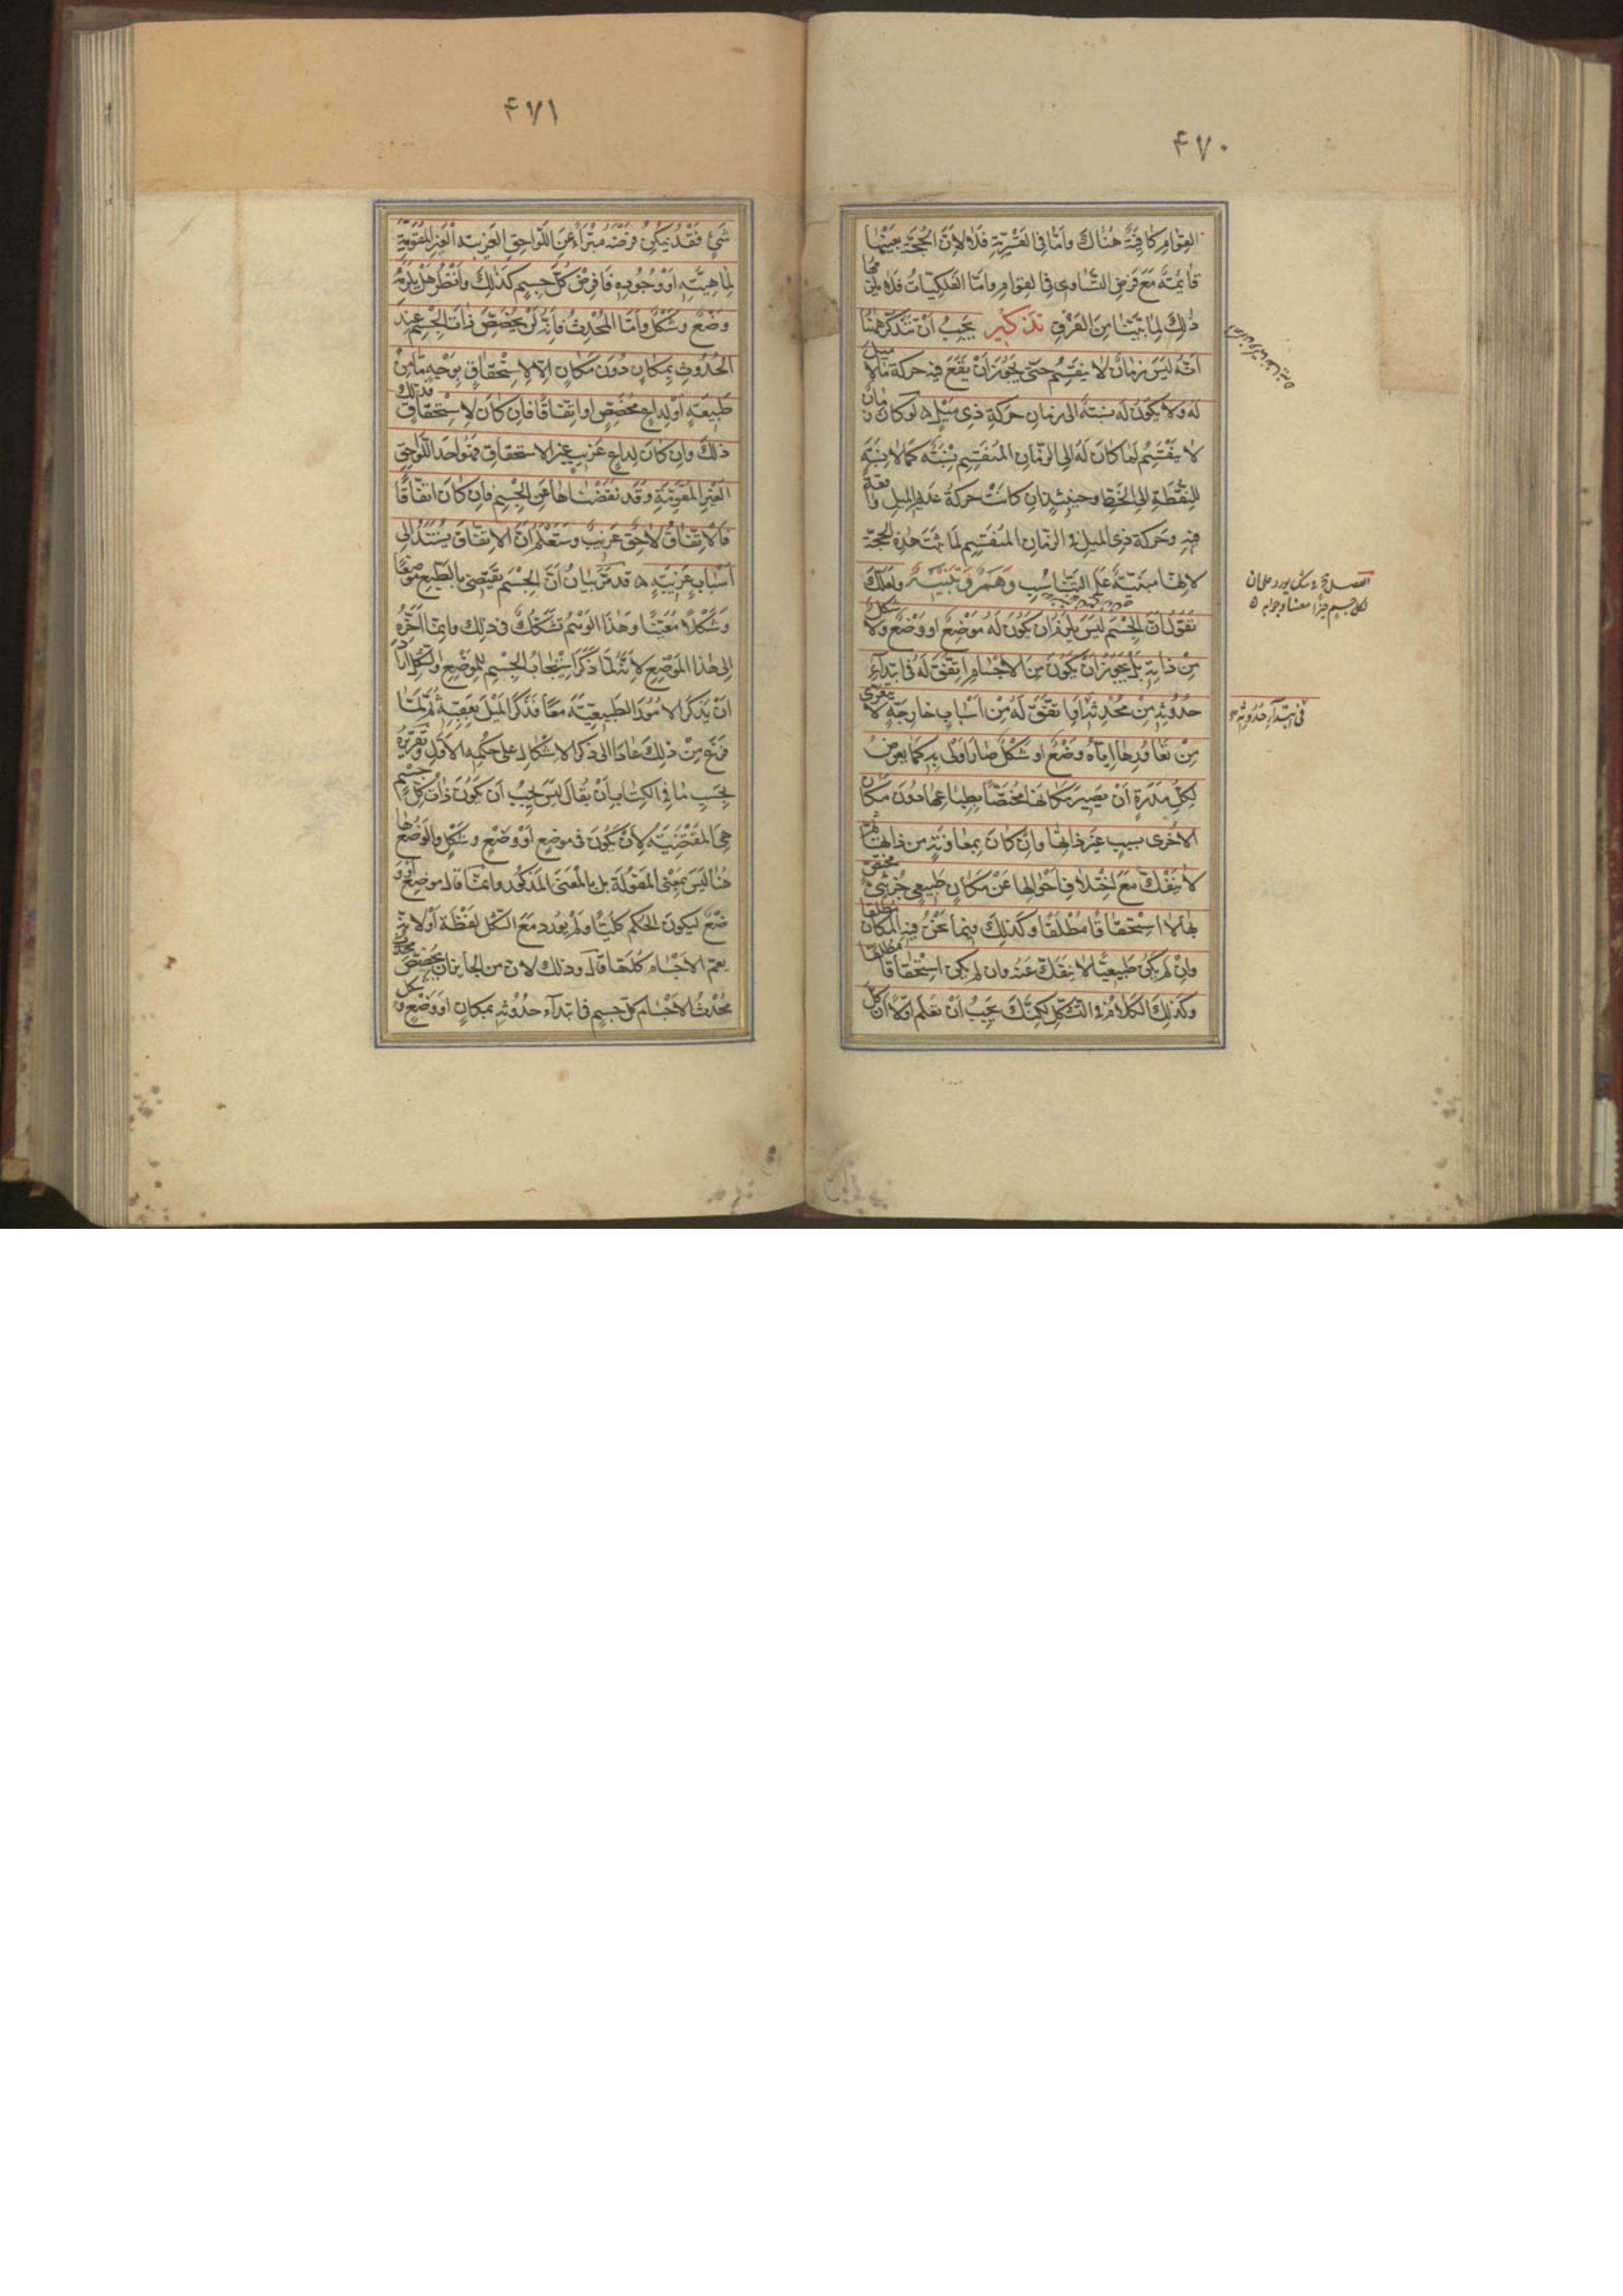 ۴۷۰
القوام كافية هناك واما في القسرية فلا لان الحجة بعينها
قائمة مع فرض التساوي في القوام واما الفلكيات فلا يلزمها
ذلك لما بينا من الفرق تذكير يجب ان تتذكر هاهنا
انه ليس زمان لا ينقسم حتى يجوز ان يقع فيه حركة ما لا ميل
له ولا يكون له نسبة الى زمان حركة ذي ميل ۵ لو كان زمان
لا ينقسم لما كان له الى الزمان المنقسم نسبة كما لا نسبة
للنقطة الى الخط وحينئذ ان كانت حركة عديم الميل واقعة
فيه وحركة ذي الميل في الزمان المنقسم لما تمت هذه الحجة
لانها مبنية على التناسب وهم وتنبيه ولعلك
تقول ان الجسم ليس يلزم ان يكون له موضع او وضع ولا شكل
من ذاته بل يجوز ان يكون من الاجسام اتفق له في ابتداء
حدوثه من محدثه او اتفق له من اسباب خارجة لا يتعرى
من تعاقدها اياه وضع او شكل صار اولى به كما يعرض
لكل مدرة ان يصير مكانها مختصا بطباعها دون مكان
الاخرى بسبب غير ذاتها وان كان بمعاونة من ذاتها ثم
لا ينفك مع اختلاف احوالها عن مكان طبيعي جزئي مختص
بها لا استحقاقا مطلقا وكذلك فيما نحن فيه المكان مطلقا
وان لم يكن طبيعيا لا ينفك عنه وان لم يكن استحقاقا مطلقا
وكذلك الكلام في التشكل لكنك يجب ان تعلم اولا ان كل
الفصل
لكل جسم حيزا معينا وجوابه ۵
في ابتداء حدوثه
۴۷۱
شيء فقد يمكن فرضه مبرأ عن اللواحق الغريبة الغير المقومة
لماهيته او وجوده فافرض كل جسم كذلك وانظر هل يلزمه
وضع وشكل واما المحدث فانه لن يخصص ذات الجسم عند
الحدوث بمكان دون مكان الا لاستحقاق بوجه ما من
طبيعته او لداع مخصص او اتفاقا فان كان لاستحقاق فذلك
ذلك وان كان لداع غريب غير الاستحقاق فهو احد اللواحق
الغير المقومة وقد نفضناها عن الجسم فان كان اتفاقا
فالاتفاق لاحق غريب وستعلم ان الاتفاق يستند الى
اسباب غريبة ۵ قد مر بيان ان الجسم يقتضي بالطبع موضعا
وشكلا معينا وهذا الوهم تشكك في ذلك وانما اخره
الى هذا الموضع لانه لما ذكر استيجاب الجسم للموضع والشكل اراد
ان يذكر الامور الطبيعية معا فذكر الميل بعقبه ثم لما
فرغ من ذلك عاد الى ذكر الاشكال على حكمه الاول وتقريره
بحسب ما في الكتاب ان يقال ليس يجب ان يكون ذات كل جسم
هي المقتضية لان يكون في موضع او وضع وشكل والوضع هاهنا
هنا ليس بمعنى المقولة بل بالمعنى المذكور وانما قال موضع او و
ضع ليكون الحكم كليا ولم يورد مع الشكل لفظة او لانه
يعم الاجسام كلها قال وذلك لان من الجائز ان يخصص محدث
محدث الاجسام كل جسم في ابتداء حدوثه بمكان او وضع وشكل